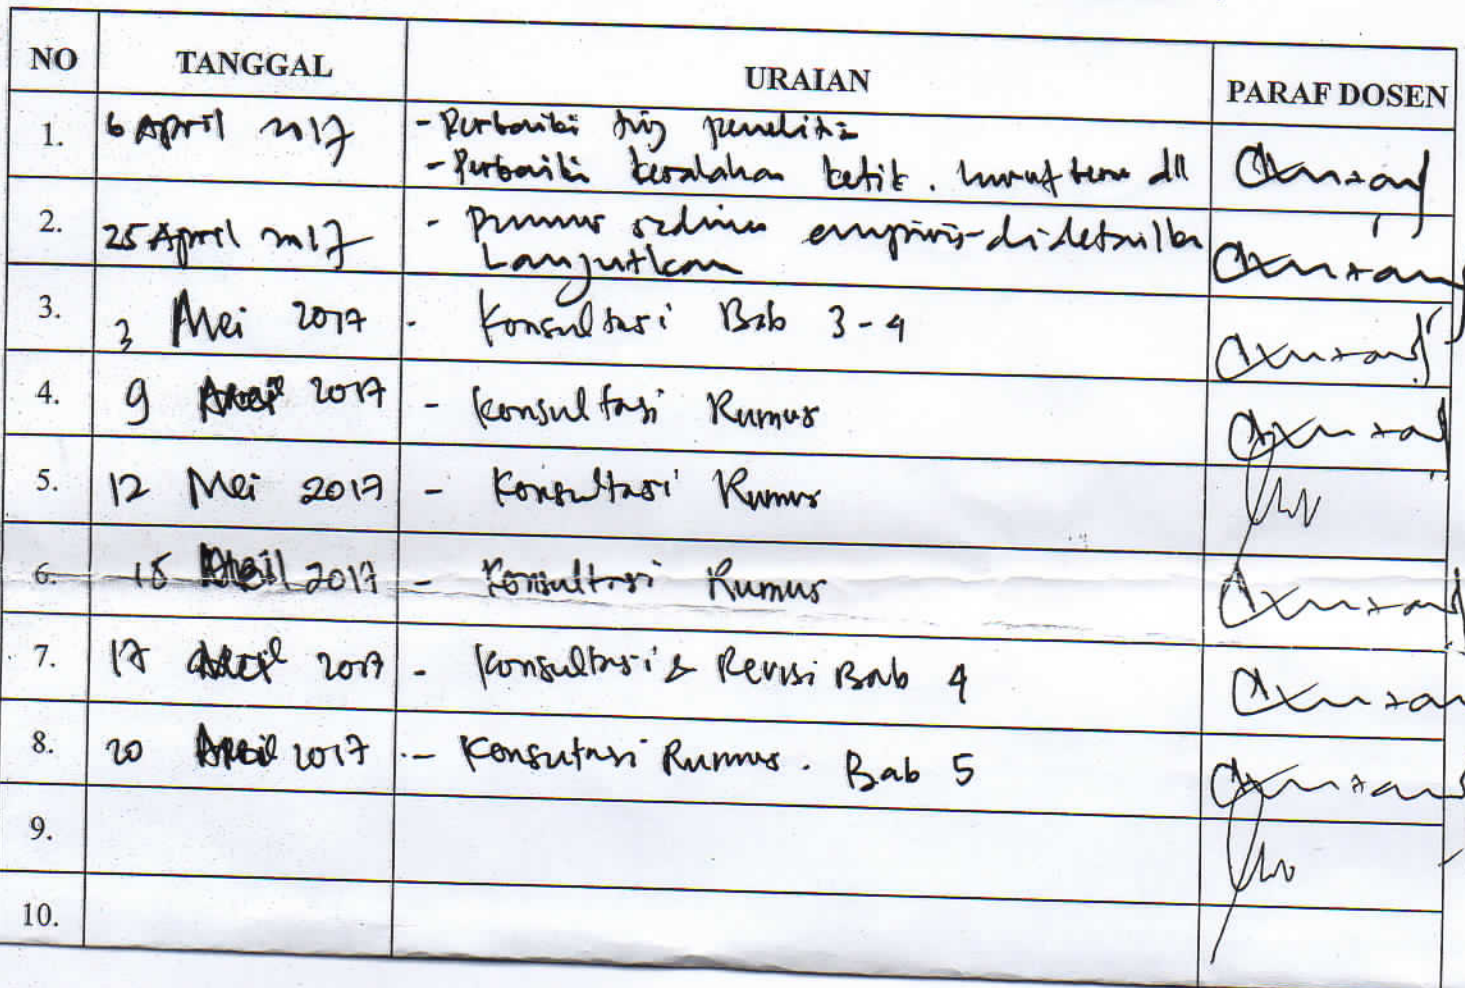 NO TANGGAL URAIAN PARAF DOSEN
1. 6 April 2017 - Perbaiki penelitia
- Perbaiki kesalahan ketik. huruf dll
2. 25 April 2017 - empiris di detailkn
Lanjutkan
3. 3 Mei 2017 - Konsultasi Bab 3-4
4. 9 2017 - Konsultasi Rumus
5. 12 Mei 2017 - Konsultasi Rumus
6. 15 2017 - Konsultasi Rumus
7. 17 2017 - Konsultasi & Revisi Bab 4
8. 20 2017 - Konsutasi Rumus. Bab 5
9.
10.